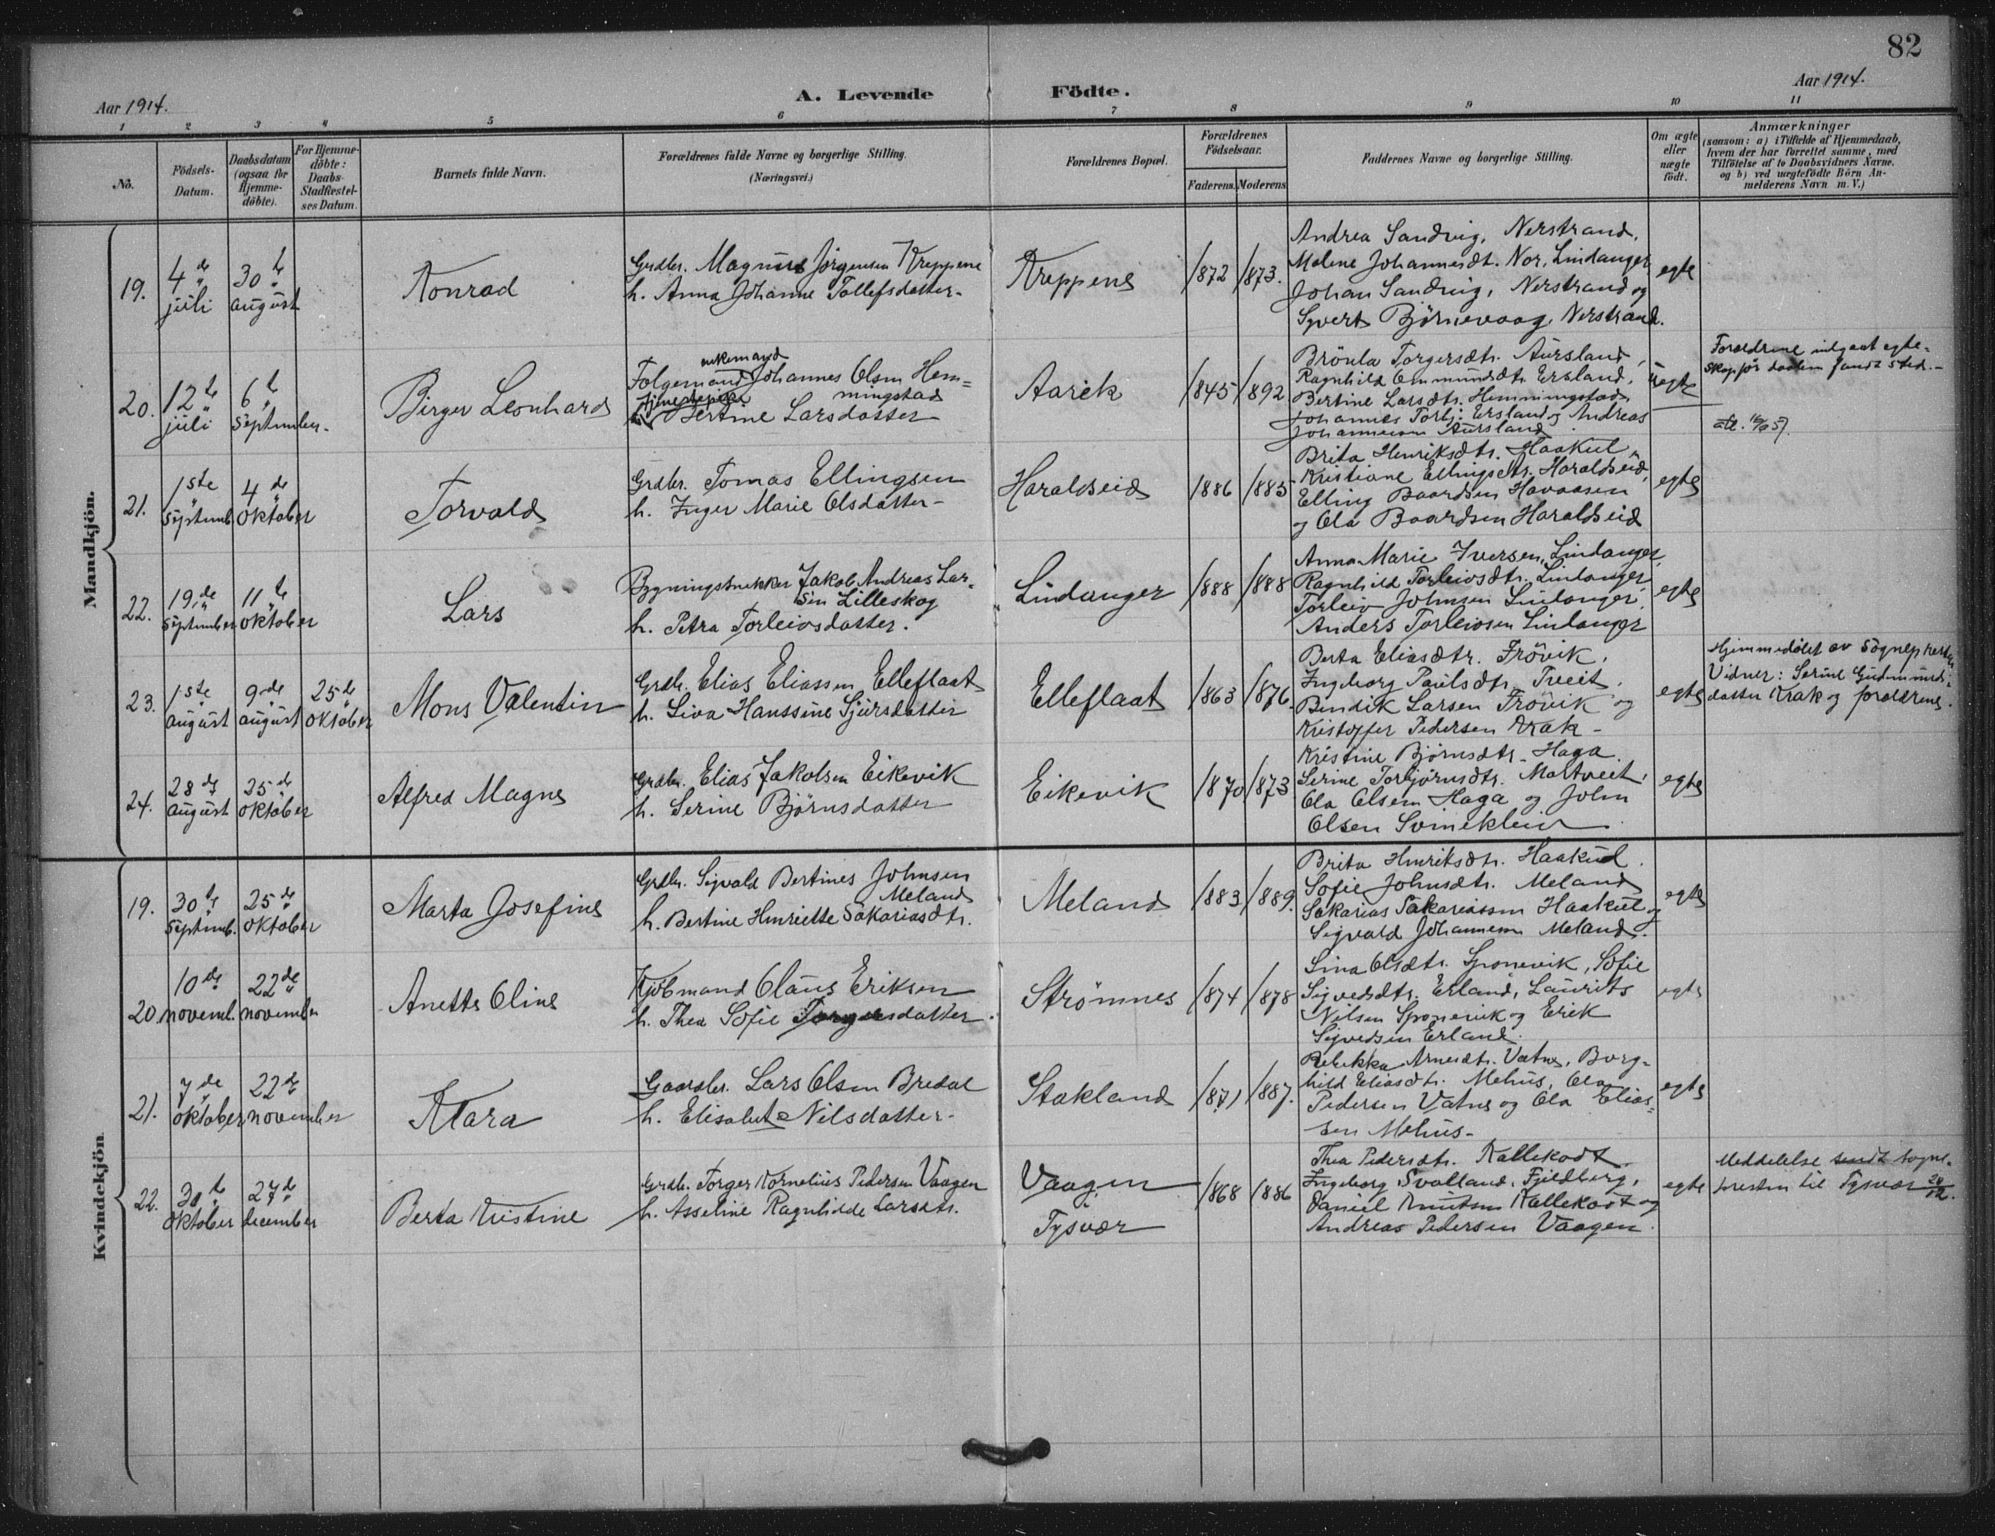 82
Aar 1914.
A. Levende Födte.
Aar 1914.
1 2 3 4 5 6 7 8 9 10 11
No.
Födsels-
Datum.
Daabsdatum
(ogsaa for
Hjemme-
döbte).
For Hjemme-
döbte:
Daabs-
Stadfæstel-
ses Datum.
Barnets fulde Navn.
Forældrenes fulde Navne og borgerlige Stilling.
(Næringsvei.)
Forældrenes Bopæl.
Forældrenes
Födselsaar.
Faderens. Moderens.
Faddernes Navne og borgerlige Stilling.
Om ægte
eller
uægte
födt.
Anmærkninger
(saasom: a) i Tilfælde af Hjemmedaab,
hvem der har forrettet samme, med
Tilföielse af to Daabsvidners Navne,
og b) ved uægtefödte Börn An-
melderens Navn m. V.)
Mandkjön.
19.
4de
juli
30te
august
Konrad
Grdbr. Magnus Jørgensen Kreppene
h. Anna Johanne Tollefsdatter
Kreppene
1872
1873.
Andrea Sandvig, Nerstrand,
Malene Johannesdt. Nor. Lindanger
Johan Sandvig, Nerstrand og
Syvert Bjørnevaag, Nerstrand.
egte
20.
12te
juli
6te
September
Birger Leonhard
enkemand
Folgemand Johannes Olsen Hem-
mingstad
Bertine Larsdatter
Aarek
1845
1892
Brönla Torgersdtr. Aursland,
Ragnhild Ommundsdtr Ersland,
Bertine Larsdtr. Hemmingstad,
Johannes Torbj. Ersland og Andreas
Johannesen Aursland
uegte
Forældrene indgaat egte-
skap før daaben fandt sted.
21.
1ste
Septemb.
4de
Oktober
Torvald
Grdbr. Tomas Ellingsen
h. Inger Marie Olsdatter
Haraldseid
1886
1885
Brita Henriksdtr. Haakul,
Kristiane Ellingsdtr. Haraldseid,
Elling Baardsen Havaasen
og Ola Baardsen Haraldseid
egte
22.
19de
September
11te
Oktober
Lars
Bygningssnekker Jakob Andreas Lar-
sen Lilleskog
h. Petra Torleivsdatter.
Lindanger
1888
1888
Anna Marie Iversen, Lindanger,
Ragnhild Torleivsdtr. Lindanger
Torleiv Johnsen Lindanger,
Anders Torleivsen Lindanger
egte
23.
1ste
august
9de
august
25de
Oktober
Mons Valentin
Grdb. Elias Eliassen Elleflaat
h. Siva Hanssine Sjursdatter
Elleflaat
1863
1876.
Berta Eliasdtr. Frövik,
Ingeborg Paulsdtr. Tveit,
Bendik Larsen Frövik og
Kristoffer Pedersen Krak
egte
Hjemmedøbt av Sogneprest
Vidner: Serine Gudmunds-
datter Krak og forældrene.
24.
28de
august
25de
Oktober
Alfred Magne
Grdbr. Elias Jakobsen Eikevik
h. Serine Bjørnsdatter
Eikevik
1870
1873
Kristine Bjørnsdtr. Haga,
Serine Torbjørnsdtr. Mortveit,
Ola Olsen Haga og John
Olsen Svineklei
egte
Kvindekjön.
19.
30te
Septemb.
25de
Oktober
Marta Josefine
Grdbr. Sigvald Bertines Johnsen
Meland
h. Bertine Henriette Sakariasdtr.
Meland
1883
1889.
Brita Henriksdtr. Haakul.
Sofie Johnsdtr. Meland
Sakarias Sakariassen Haakul og
Sigvald Johannesen Meland.
egte
20.
10de
novemb.
22de
november
Anette Oline
Kjøbmand Claus Eriksen
h. Thea Sofie Torgersdatter.
Strömnes
1874
1878
Sina Olsdtr. Sponevik, Sofie
Sigvedsdtr. Erland, Laurits
Nilsen Sponevik og Erik
Sigvedsen Erland.
egte
21.
7de
Oktober
22de
november
Klara
Gaardbr. Lars Olsen Bredal
h. Elisabet Nilsdatter
Stakland
1871
1887.
Rebekka Arnesdtr. Vatne, Borg-
hild Eliasdtr. Mehus, Ola
Pedersen Vatne og Ola Elias-
sen Mehus
egte
22.
30te
Oktober
27de
december
Berta Kristine
Grdb. Torger Kornelius Pedersen Vaagen
h. Asseline Ragnhilde Larsdtr.
Vaagen
Tysvær
1868
1886
Thea Pedersdtr. Kallekodt
Ingeborg Svalland, Fjeldberg,
Daniel Knutsen Kallekodt og
Andreas Pedersen Vaagen.
egte
Meddelelse sendt sogne-
presten til Tysvær